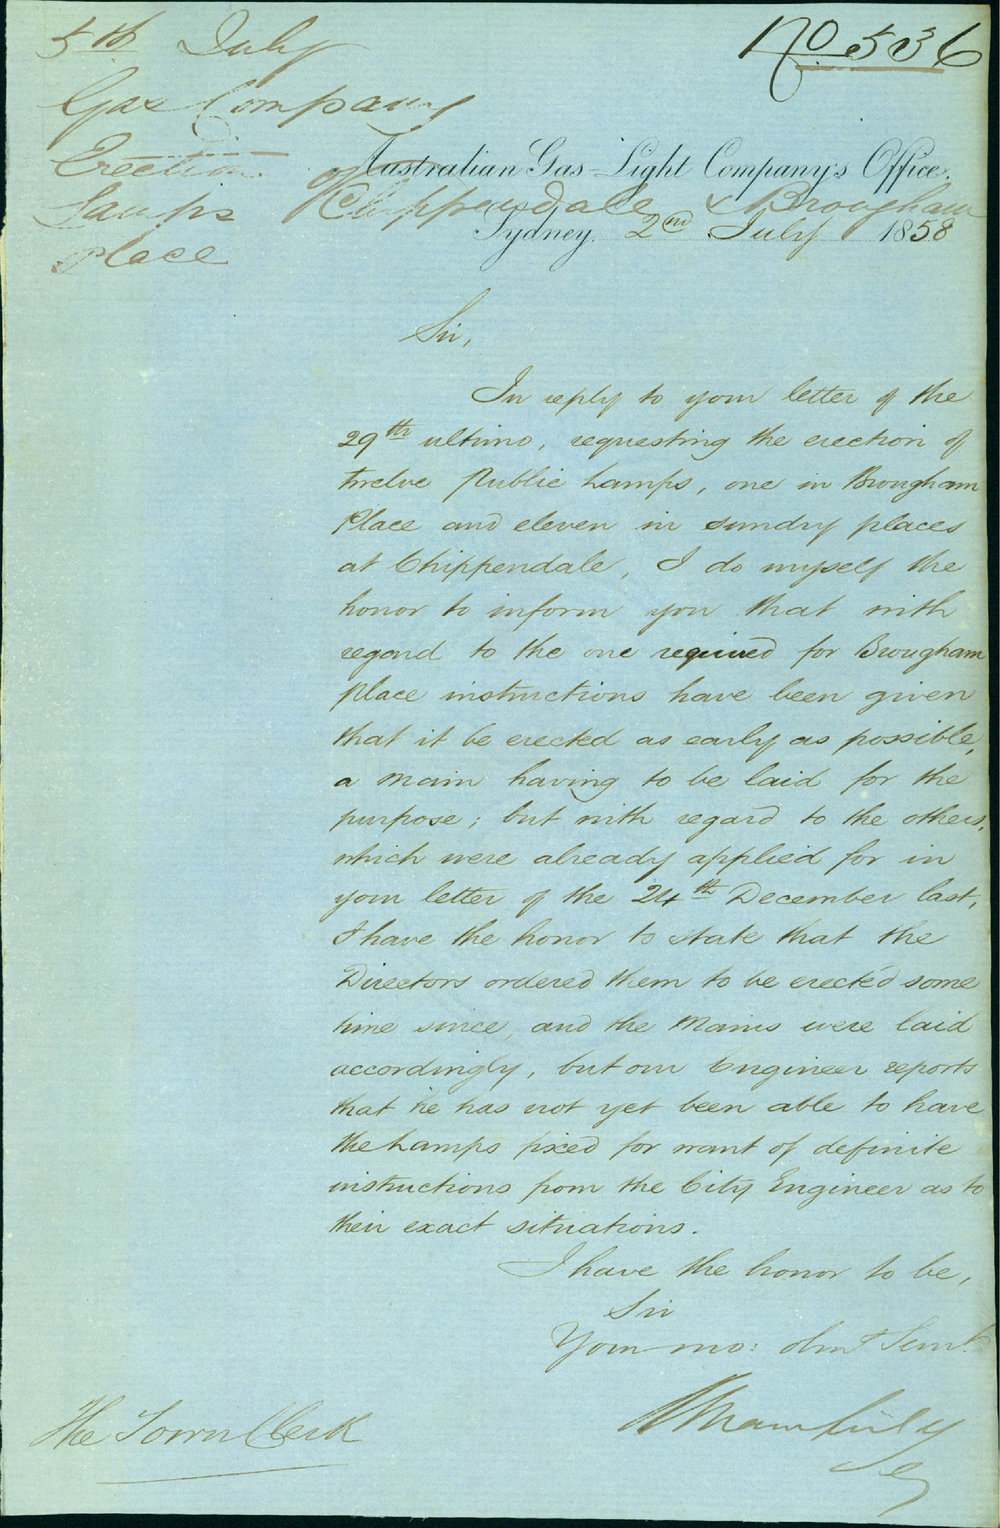 5th July
No 536
Gas Company
Erection of
Lamps Chippendale & Brougham
Place
Australian Gas-Light Company's Office.
Sydney. 2nd July 1858
Sir,
In reply to your letter of the
29th ultimo, requesting the erection of
twelve Public Lamps, one in Brougham
Place and eleven in sundry places
at Chippendale, I do myself the
honor to inform you that with
regard to the one required for Brougham
Place instructions have been given
that it be erected as early as possible,
a main having to be laid for the
purpose; but with regard to the others,
which were already applied for in
your letter of the 24th December last,
I have the honor to state that the
Directors ordered them to be erected some
time since, and the Mains were laid
accordingly, but our Engineer reports
that he has not yet been able to have
the Lamps fixed for want of definite
instructions from the City Engineer as to
their exact situations.
I have the honor to be,
Sir
Your mo: obnt Servt.
The Town Clerk